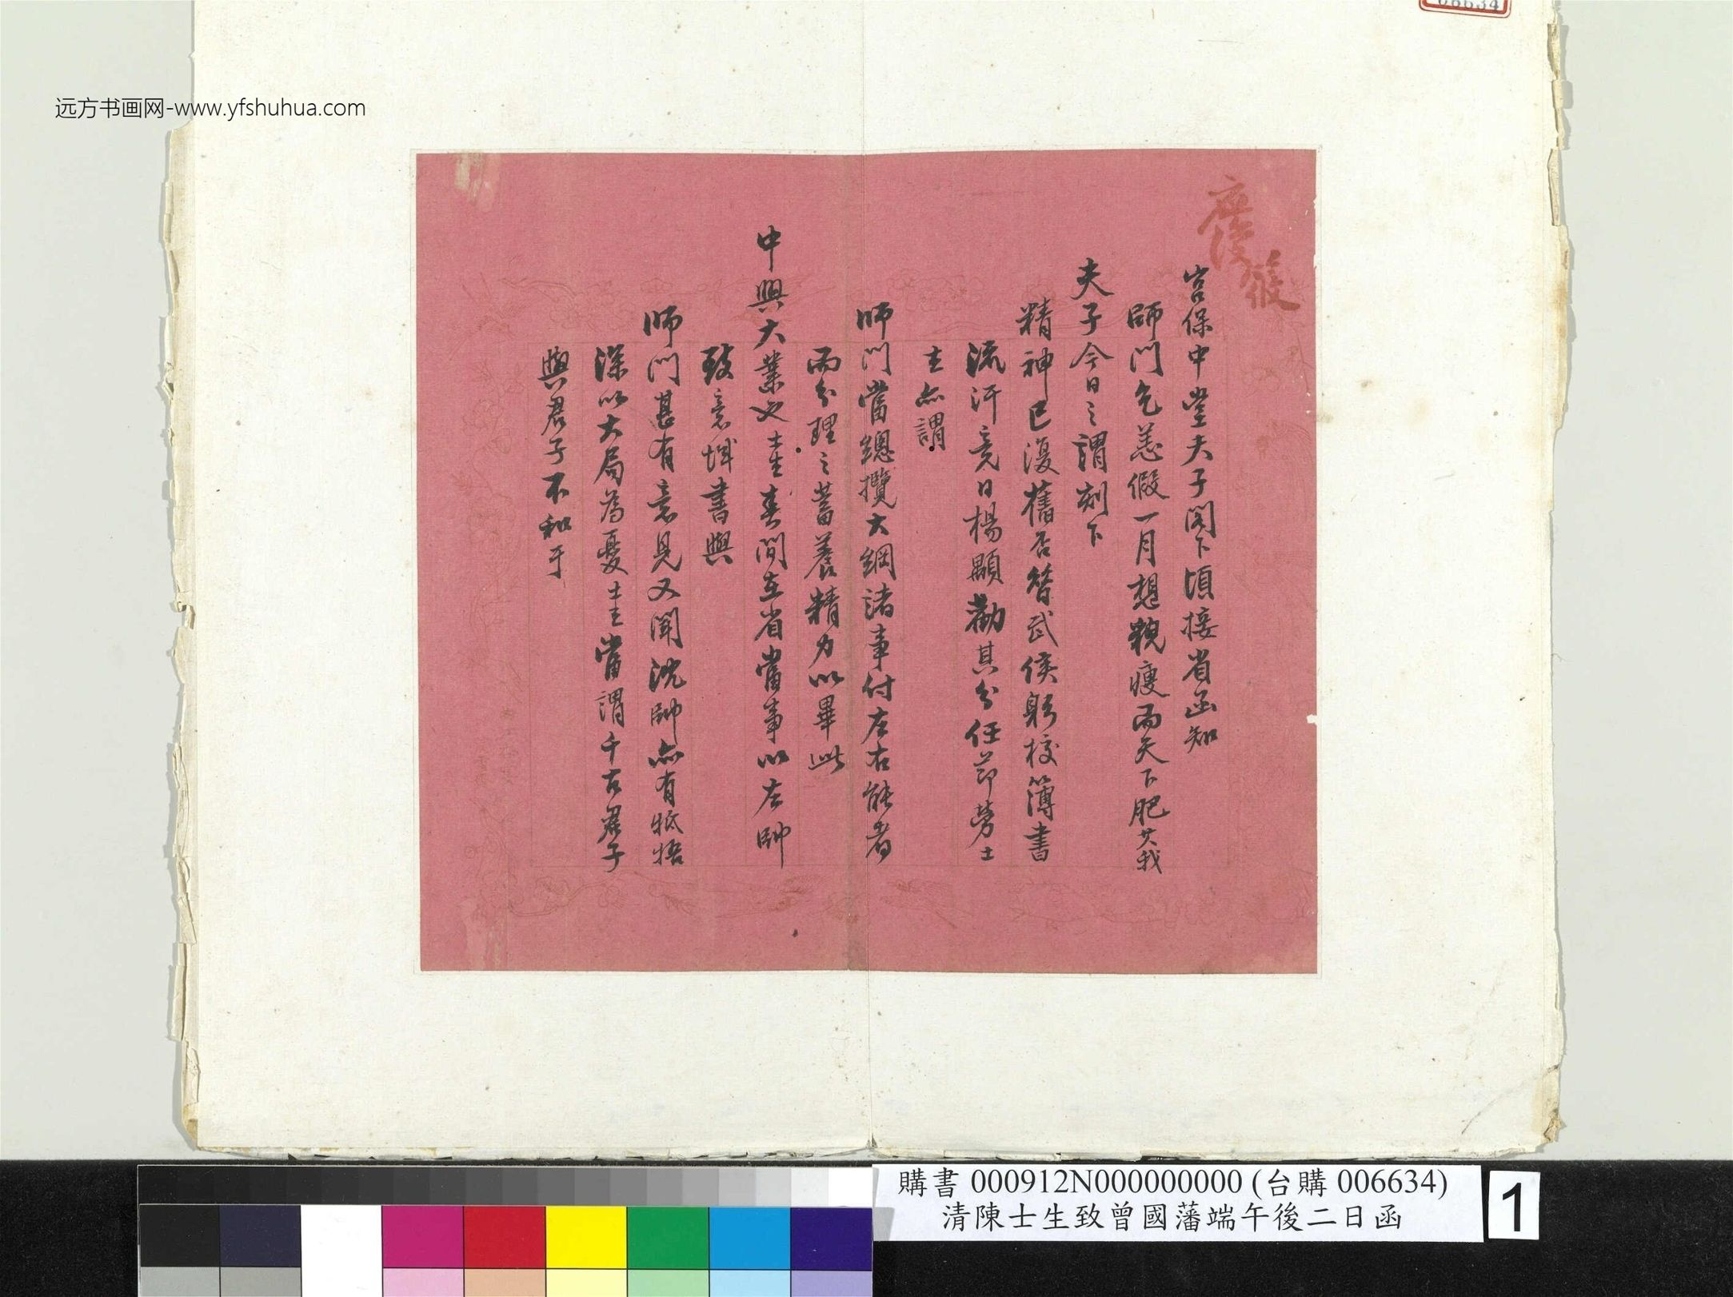 宮保中堂夫子閣下頃接省函知
師門乞恙假一月想貌瘦而天下肥其我
夫子今日之謂刻下
精神已復舊否昔武侯躬校簿書
流汗竟日楊顒勸其分任節勞士
生亦謂
師門當總攬大綱諸事付左右能者
而分理之蓄養精力以畢此
中興大業也士生春間在省當事以左帥
致意城書與
師門甚有意見又聞沈帥亦有牴牾
深以大局為憂士生嘗謂千古君子
與君子不和于
远方书画网-www.yfshuhua.com
購書 000912N000000000 (台購 006634)
清陳士生致曾國藩端午後二日函
1